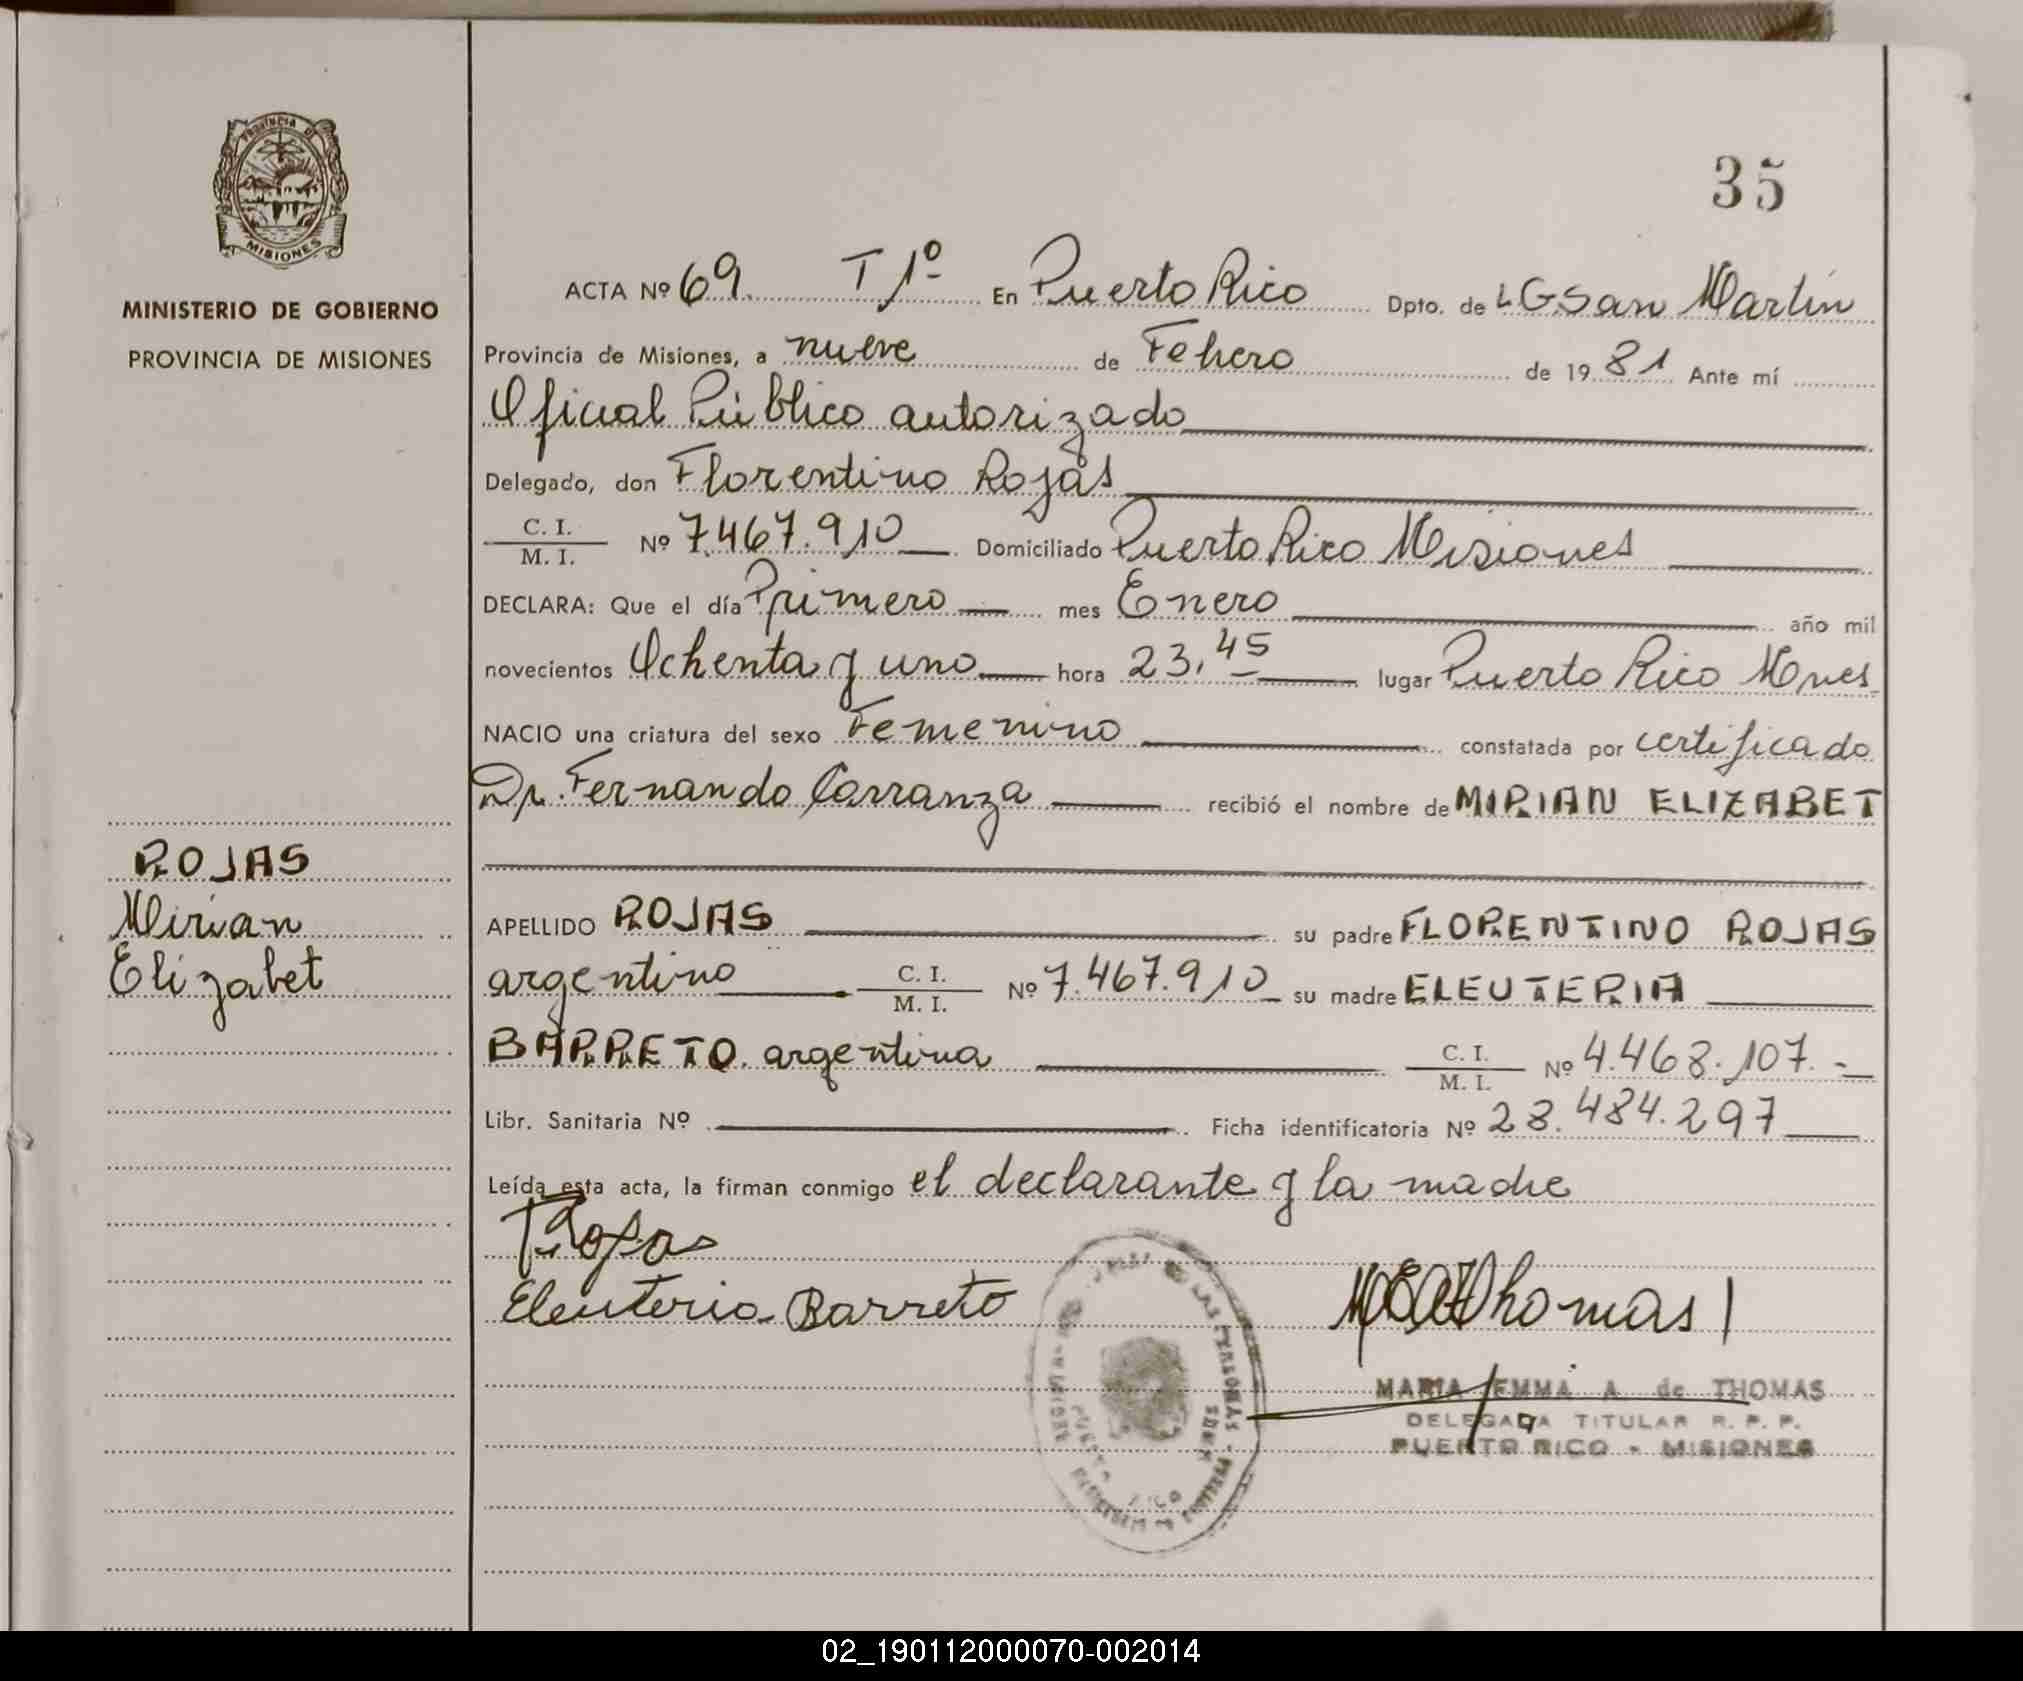 PROVINCIA DE
MISIONES
MINISTERIO DE GOBIERNO
PROVINCIA DE MISIONES
ROJAS
Mirian
Elizabet
35
ACTA Nº 69. T 1º En Puerto Rico Dpto. de L G San Martín
Provincia de Misiones, a nueve de Febrero de 19 81 Ante mí
Oficial Público autorizado
Delegado, don Florentino Rojas
C. I. / M. I. Nº 7.467.910 Domiciliado Puerto Rico Misiones
DECLARA: Que el día Primero mes Enero año mil
novecientos Ochenta y uno hora 23,45 lugar Puerto Rico Mnes
NACIO una criatura del sexo Femenino constatada por certificado
Dr. Fernando Carranza recibió el nombre de MIRIAN ELIZABET
APELLIDO ROJAS su padre FLORENTINO ROJAS
argentino C. I. / M. I. Nº 7.467.910 su madre ELEUTERIA
BARRETO. argentina C. I. / M. I. Nº 4.468.107.-
Libr. Sanitaria Nº Ficha identificatoria Nº 28.484.297
Leída esta acta, la firman conmigo el declarante y la madre
Rojas
Eleuteria Barreto
MEA Thomas
MARIA EMMA A. de THOMAS
DELEGADA TITULAR R. P. P.
PUERTO RICO - MISIONES
DE LAS PERSONAS
PUERTO RICO
02_190112000070-002014